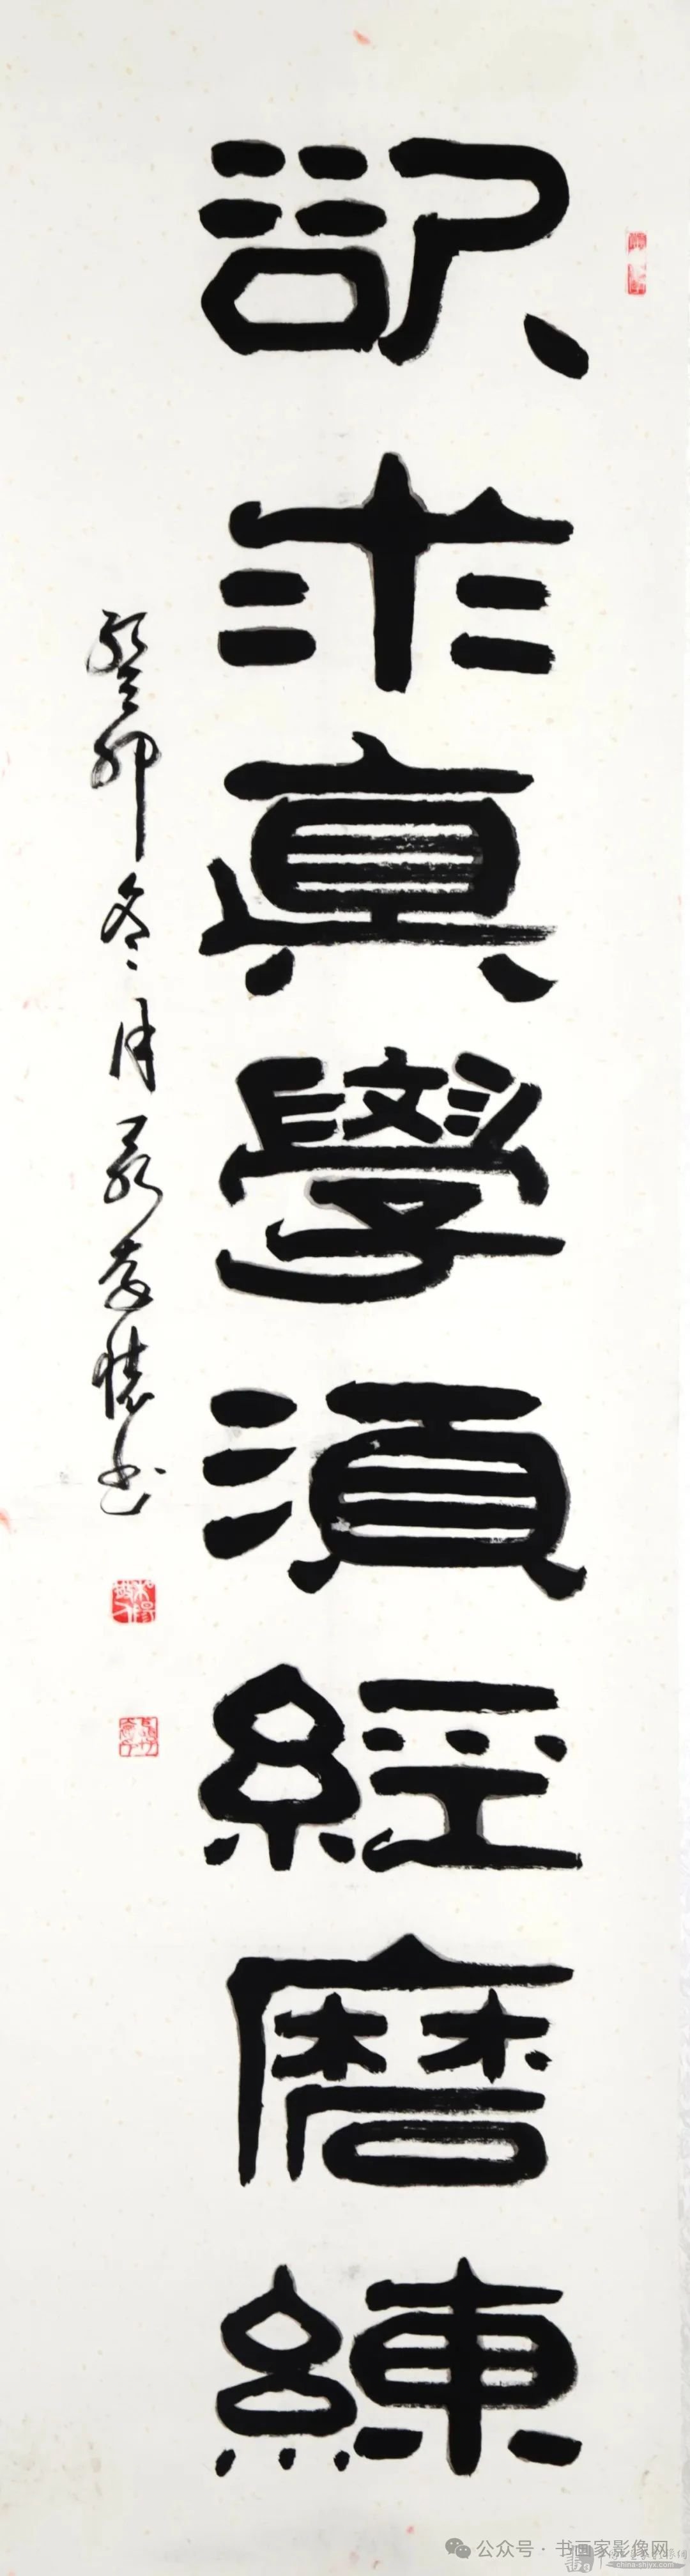 欲求真學須經磨練
癸卯冬月
书
公众号·书画家影像网
www.china-shjyx.com